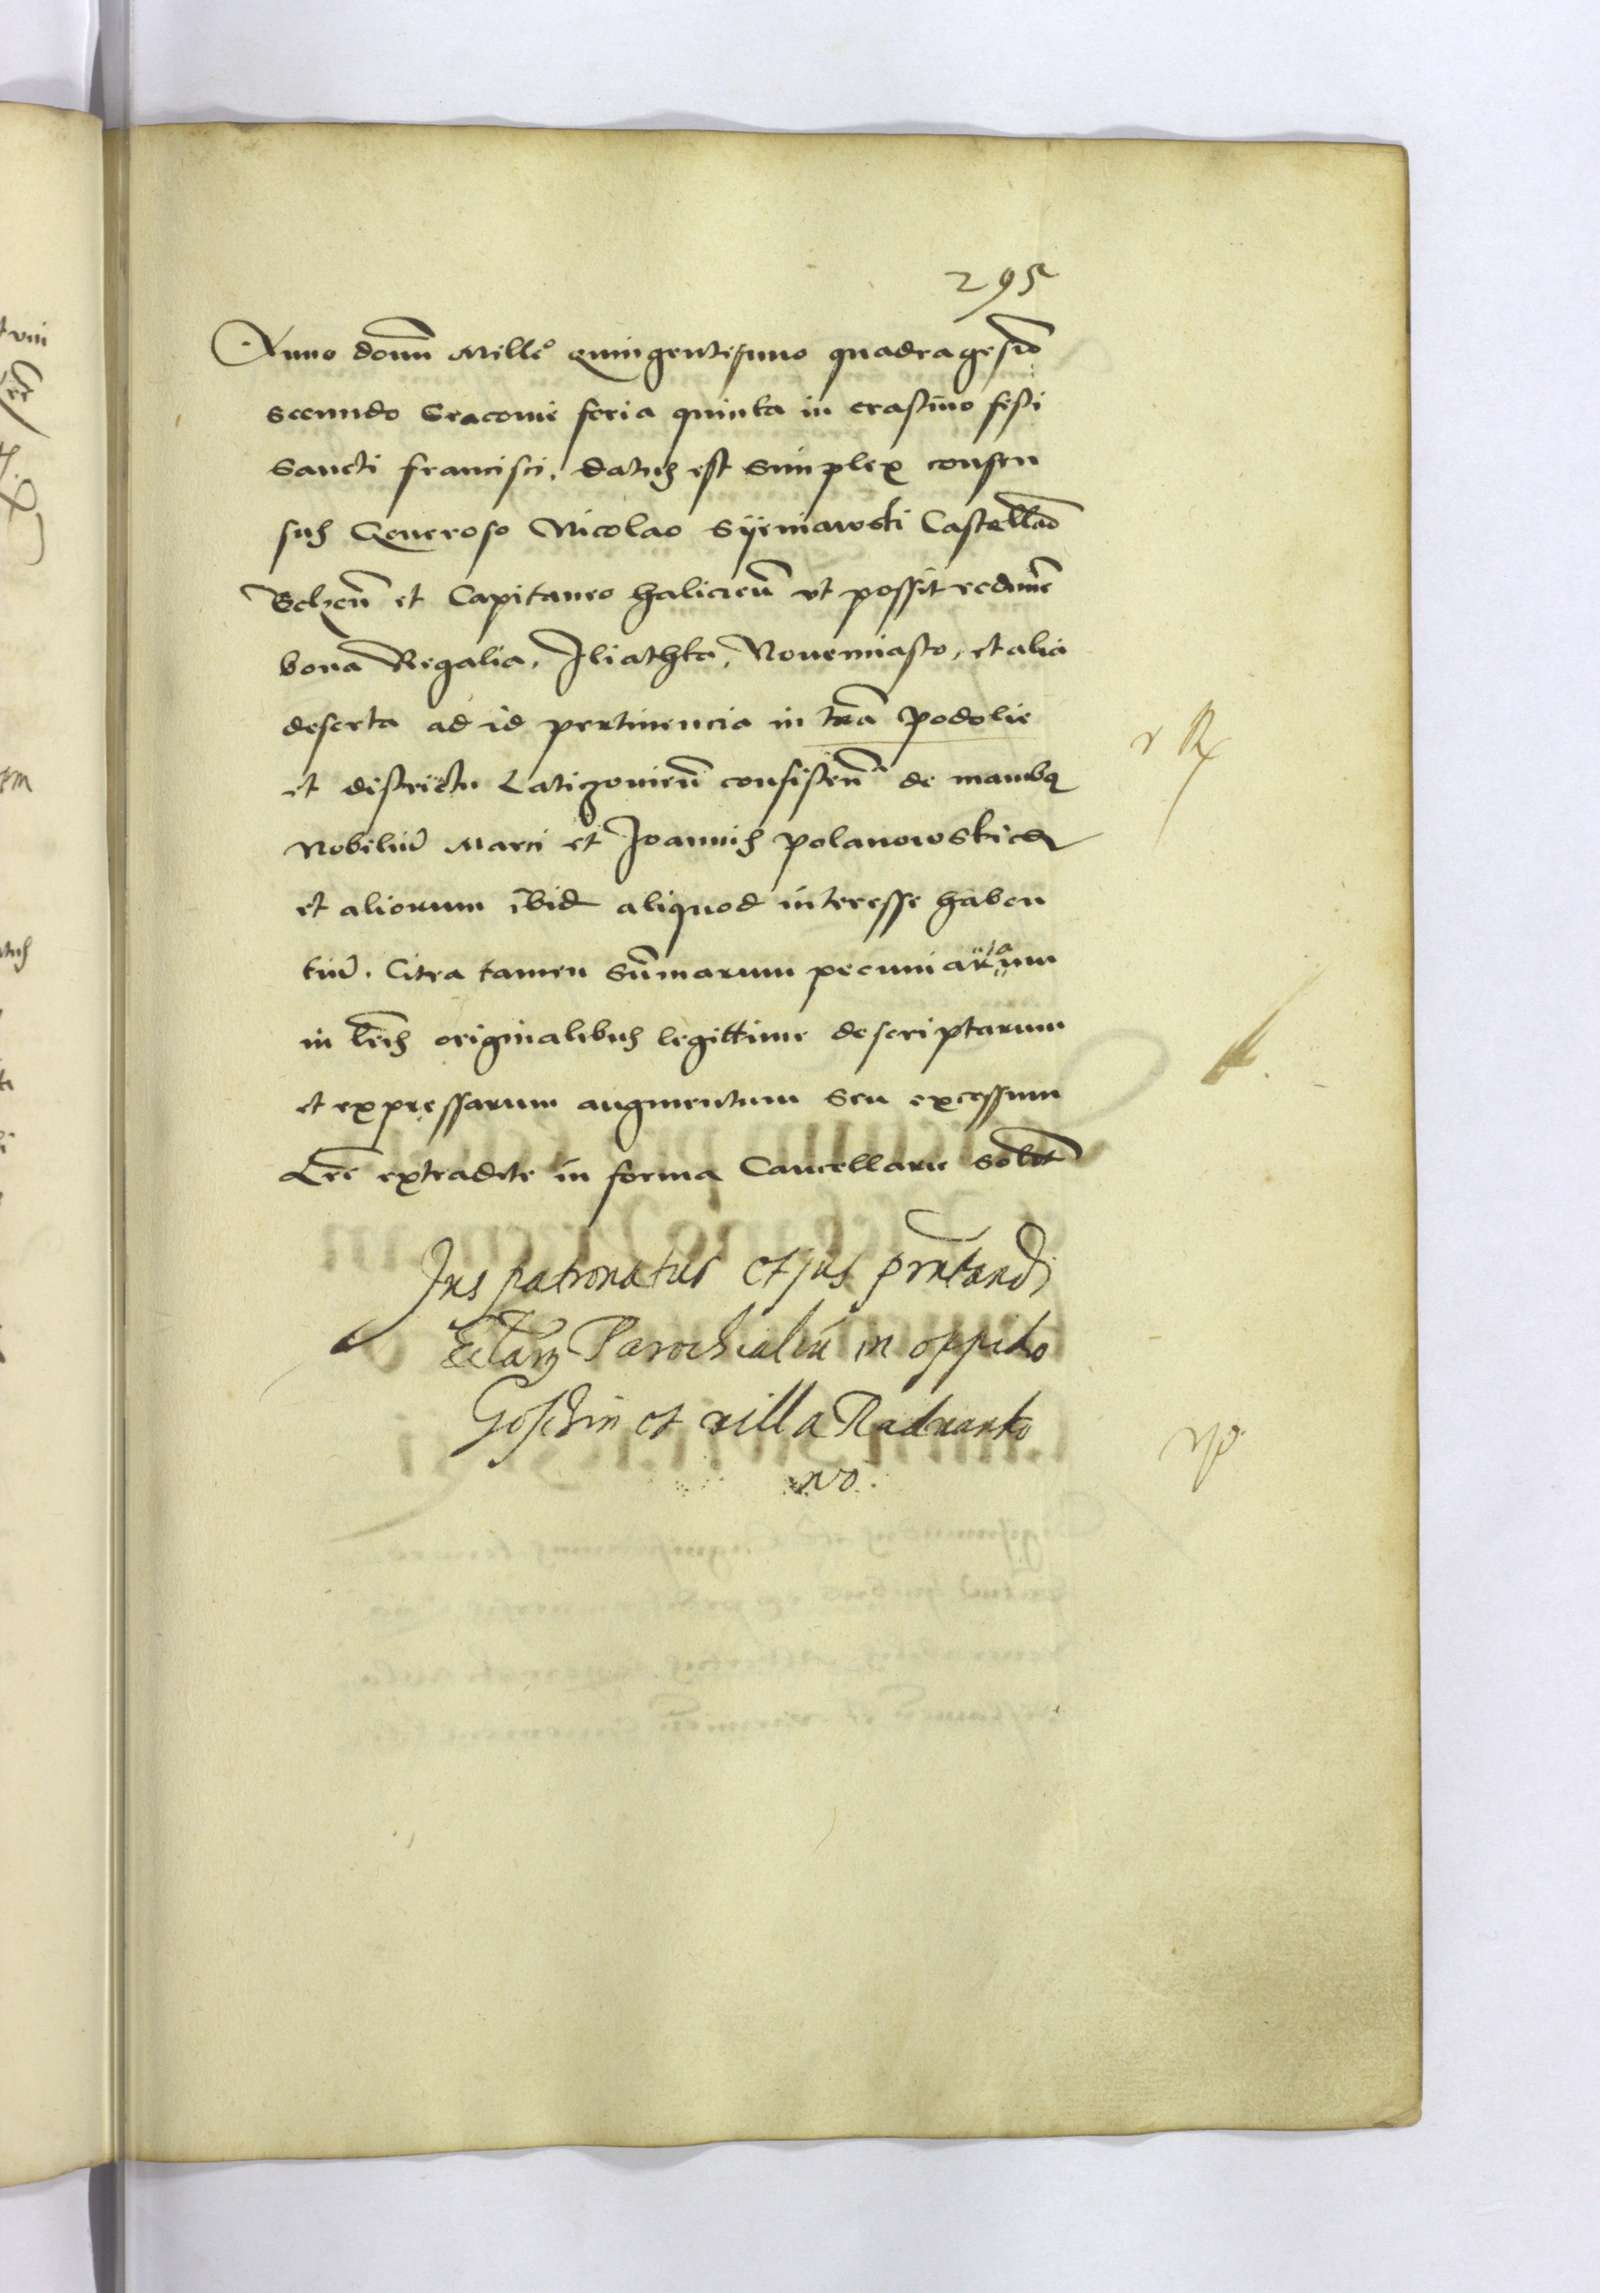 295
Anno domĩ Milleo Quingentesimo quadragesiõ
secundo Cracovie feria quinta in crastino festi
Sancti francisci, datus est Simplex consen
sus Generoso Nicolao Syeniawski Castellaõ
Belzeñ et Capitaneo halicieñ ut possit redime
bona Regalia, Iliathka, Novemiasto, et alia
deserta ad id pertinencia in tra Podolie
et districtu Laticzovieñ consisteñ de manibq
Nobiliũ Marci et Joannis polanowskich
et aliorum ibid aliquod interesse haben
tiũ. Citra tamen Summarum pecuniarum
in lris originalibus legittime descriptarum
et expressarum augmentum seu excessum
Lre extradite in forma Cancellarie Solit
Jus patronatus et jus pntandi
Eccłarz Parochialiũ in oppido
Goschin et villa Radwanko
wo.